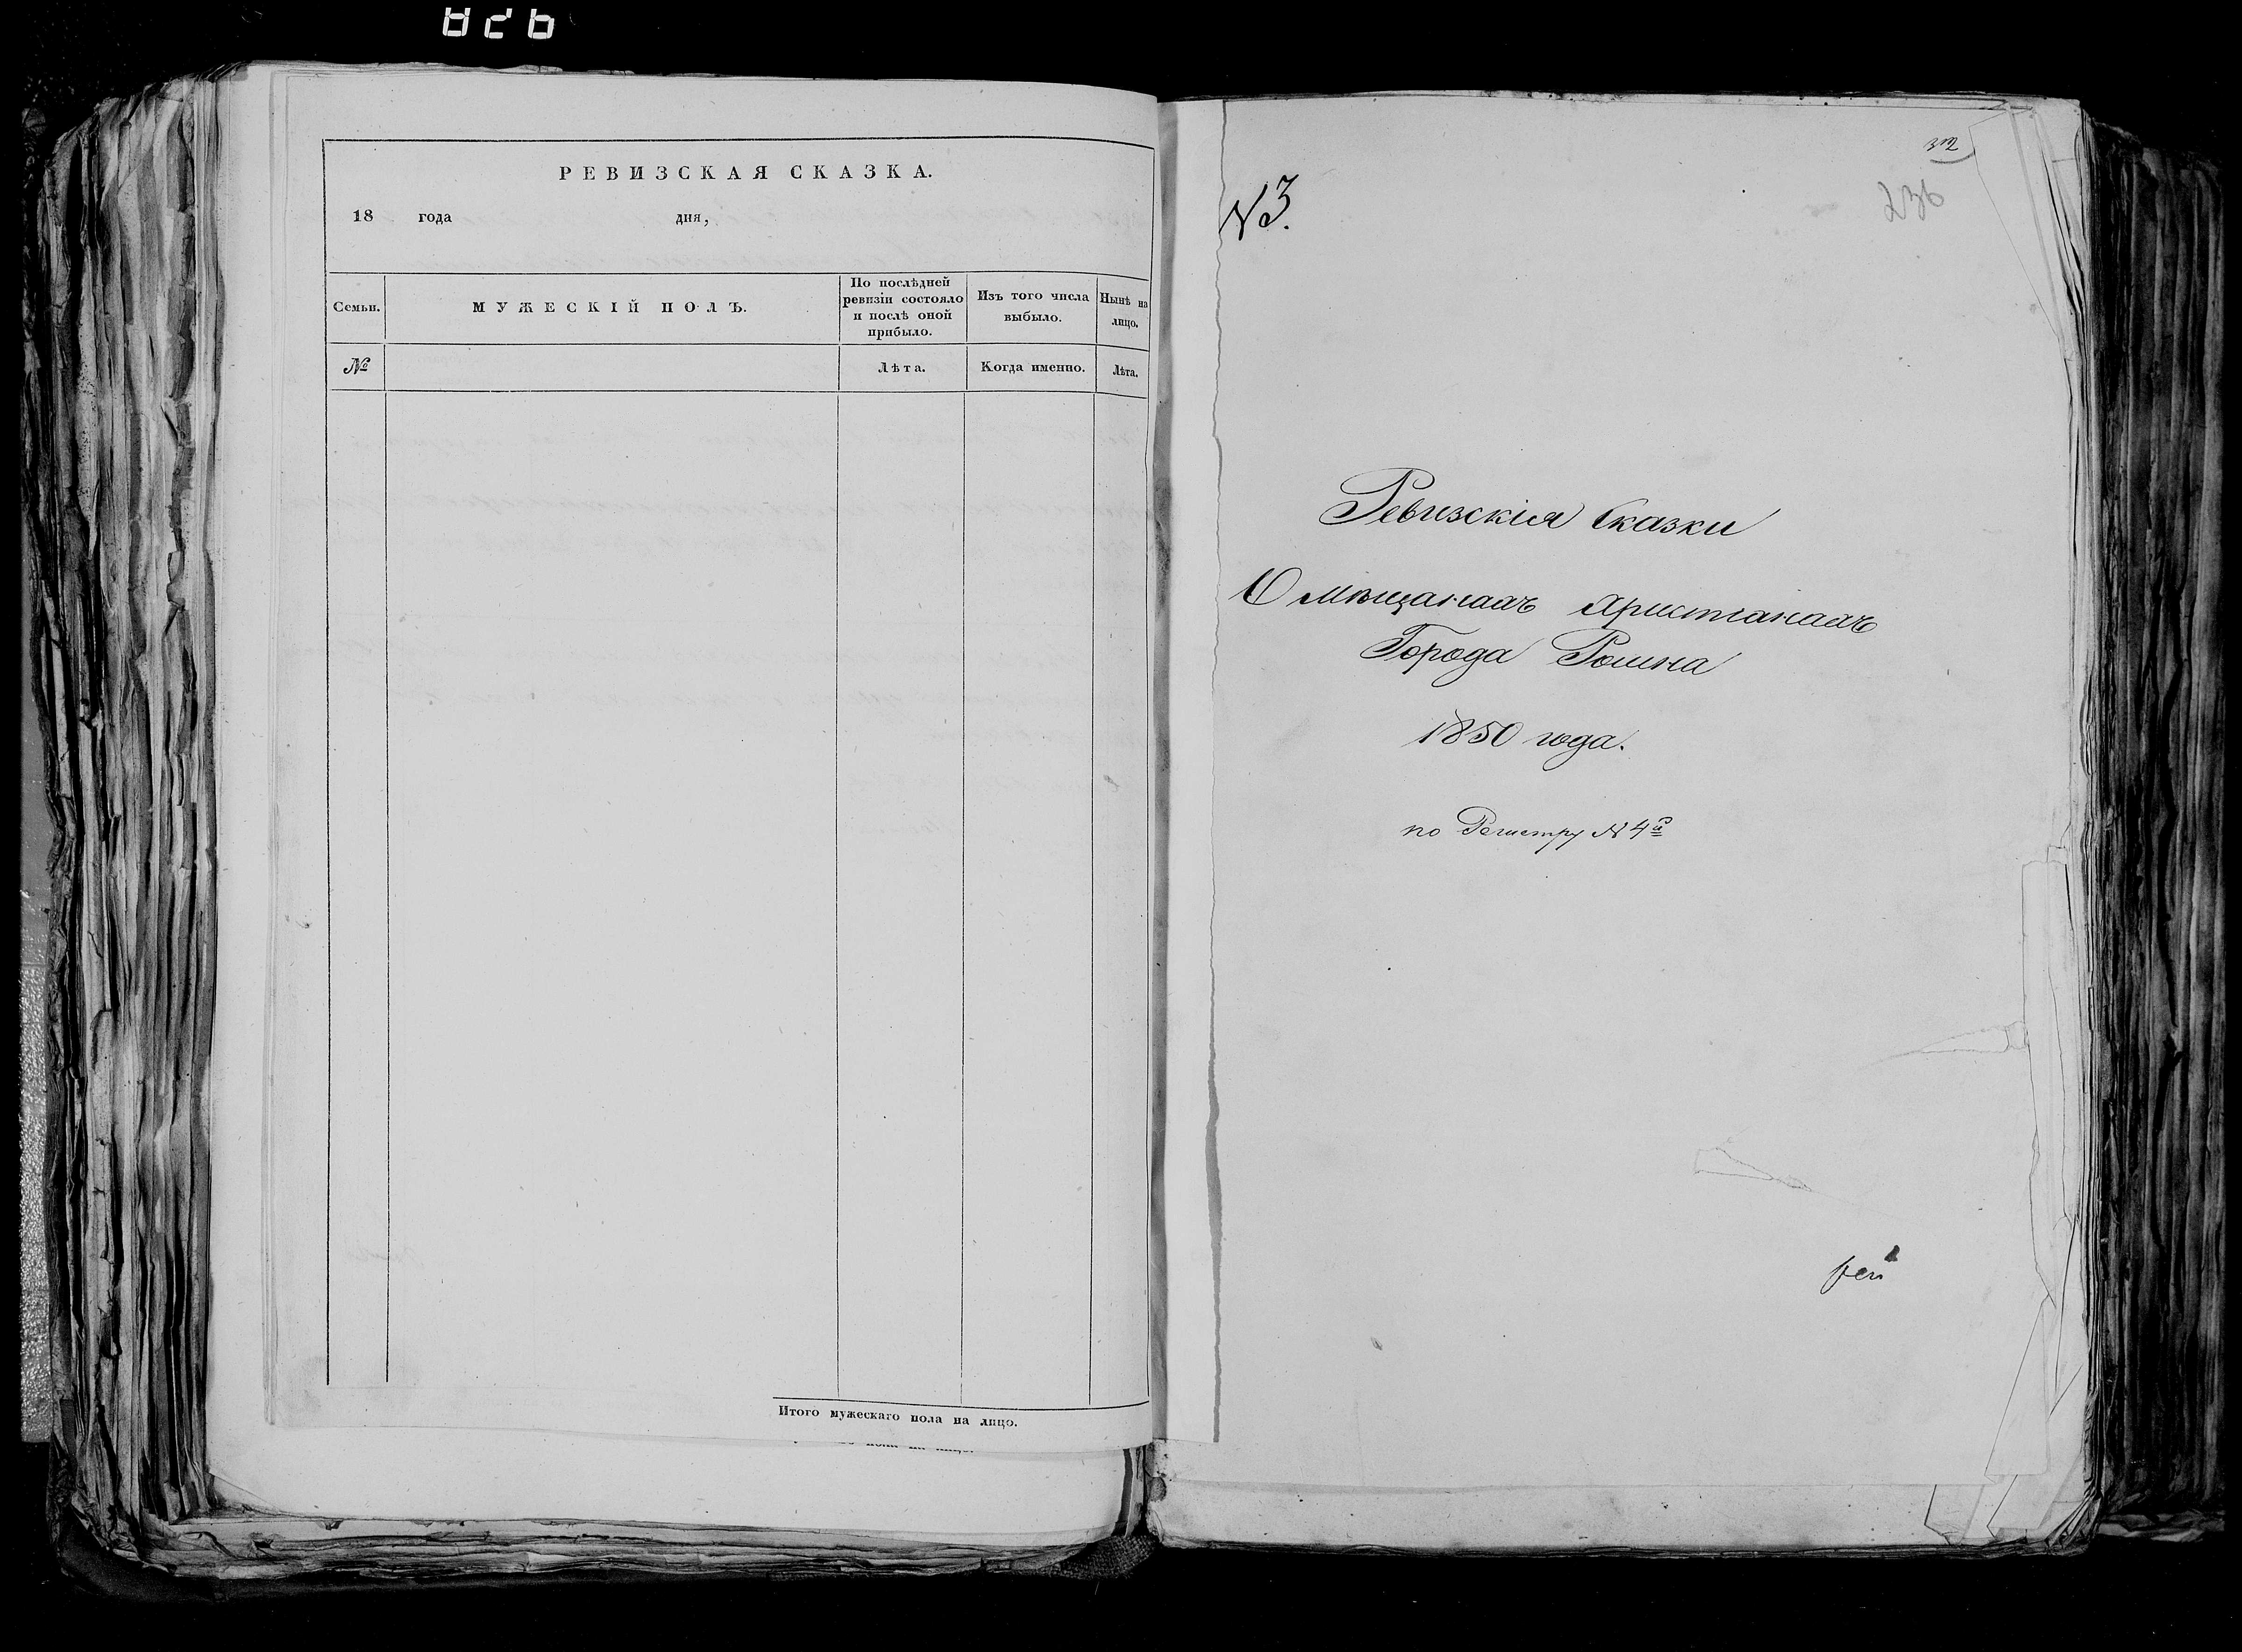 826
РЕВИЗСКАЯ СКАЗКА.
18 года дня,
Семьи.
МУЖЕСКІЙ ПОЛЪ.
По послѣдней
ревизіи состояло
и послѣ оной
прибыло.
Изъ того числа
выбыло.
Нынѣ на
лицо.
№
Лѣта.
Когда именно.
Лѣта.
Итого мужескаго пола на лицо.
312
236
N3.
Ревизскія Сказки
О мѣщанахъ Христианахъ
Города Ромна
1850 года.
по Регистру N 4й